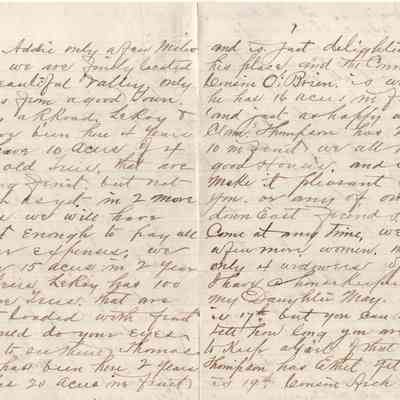 Addie only a few Miles
we are finely located
beautiful valley only
from a good town.
RRoad, LeRoy &
been here 4 years
have 10 Acres of 4
old trees, that are
fruit. but not
as yet. in 2 more
we will have
enough to pay all
expenses, we
15 acres in 2 year
trees, LeRoy has 100
trees. that are
Loaded with fruit
would do your Eyes
to see them, Thomas
has been here 2 years
has 20 acres in fruit
7
and is just delighted
his place and the
Cousin O'Brien. is
he has 16 acres in
and just as happy a
Clam. Thompson has 2
10 in fruit. we all
good Houses. and
make it pleasant
you. or any of our
down East friends
Come at any time, we
a few more women.
only 4 widowers
I have a housekeeper
My Daughter May.
is 17th. but you can
tell how long you are
to Keep a girl of that
Thompson has Ethel.
is 19th. Cousin Rich